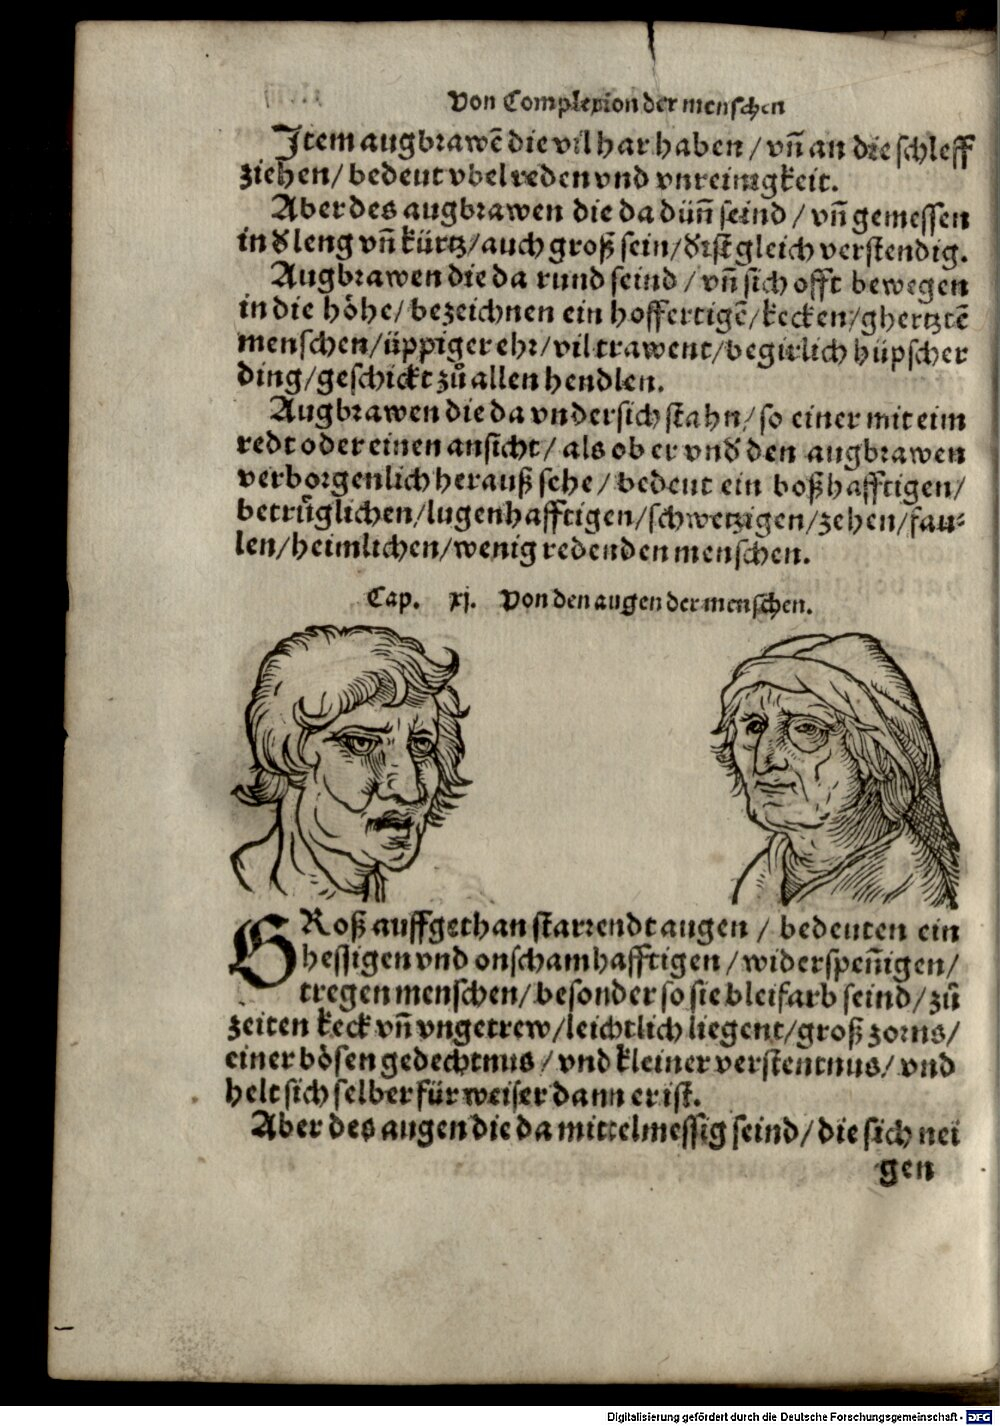 Von Complexion der menschen
Item augbrawē die vil har haben / vñ an die schleff
ziehen / bedeut vbel reden vnd vnreinigkeit.
Aber des augbrawen die da düñ seind / vñ gemessen
in d̕ leng vñ kürtz / auch groß sein / d̕ ist gleich verstendig.
Augbrawen die da rund seind / vñ sich offt bewegen
in die höhe / bezeichnen ein hoffertigē / kecken / ghertztē
menschen / üppiger ehr / vil trawent / begirlich hüpscher
ding / geschickt zů allen hendlen.
Augbrawen die da vndersich stahn / so einer mit eim
redt oder einen ansicht / als ob er vnd̕ den augbrawen
verborgenlich herauß sehe / bedeut ein boßhafftigen /
betrüglichen / lugenhafftigen / schwetzigen / zehen / fau⸗
len / heimlichen / wenig redenden menschen.
Cap. xj. Von den augen der menschen.
GRoß auffgethan starrendt augen / bedeuten ein
hessigen vnd onschamhafftigen / widerspeñigen /
tregen menschen / besonder so sie bleifarb seind / zů
zeiten keck vñ vngetrew / leichtlich liegent / groß zorns /
einer bösen gedechtnus / vnd kleiner verstentnus / vnd
helt sich selber für weiser dann er ist.
Aber des augen die da mittelmessig seind / die sich nei
gen
Digitalisierung gefördert durch die Deutsche Forschungsgemeinschaft - DFG